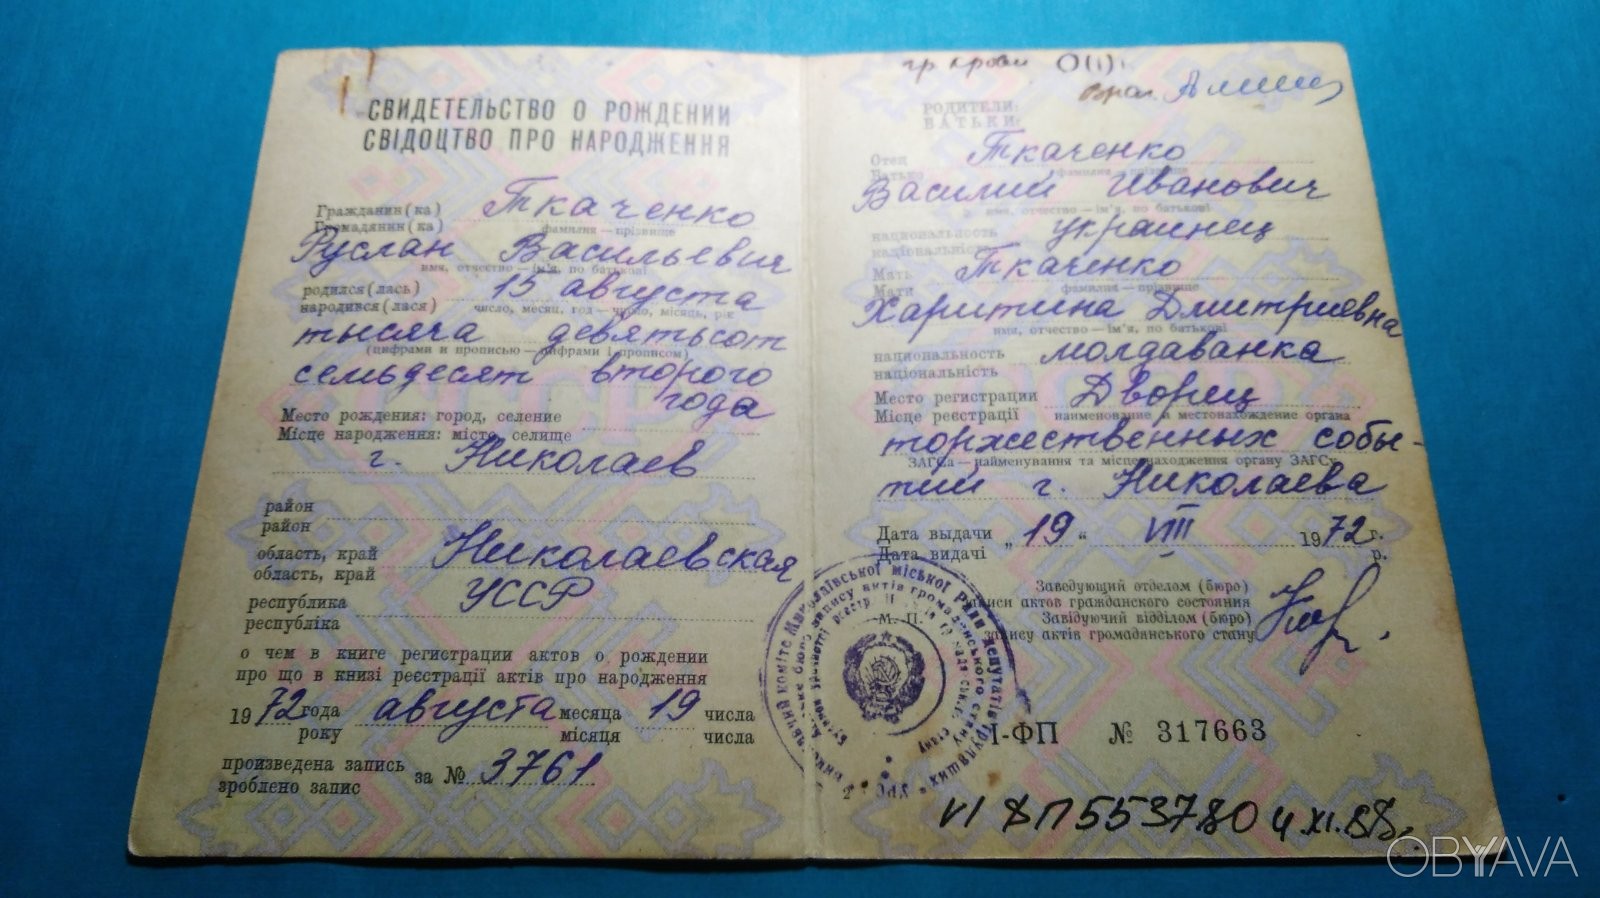 СВИДЕТЕЛЬСТВО О РОЖДЕНИИ
СВІДОЦТВО ПРО НАРОДЖЕННЯ
Гражданин(ка) Ткаченко
Громадянин(ка) фамилия — прізвище
Руслан Васильевич
имя, отчество — ім'я, по батькові
родился(лась) 15 августа
народився(лася) число, месяц, год — число, місяць, рік
тысяча девятьсот
(цифрами и прописью — цифрами і прописом)
семьдесят второго
года
Место рождения: город, селение
Місце народження: місто, селище
г. Николаев
район
район
область, край Николаевская
область, край
республика УССР
республіка
о чем в книге регистрации актов о рождении
про що в книзі реєстрації актів про народження
1972 года августа месяца 19 числа
року місяця числа
произведена запись за № 3761
зроблено запис
гр крови O(I)
РОДИТЕЛИ:
БАТЬКИ:
Отец Ткаченко
Батько фамилия — прізвище
Василий Иванович
имя, отчество — ім'я, по батькові
национальность украинец
національність
Мать Ткаченко
Мати фамилия — прізвище
Харитина Дмитриевна
имя, отчество — ім'я, по батькові
национальность молдаванка
національність
Место регистрации Дворец
Місце реєстрації наименование и местонахождение органа
торжественных собы-
ЗАГСа — найменування та місцезнаходження органу ЗАГСу
тий г. Николаева
Дата выдачи „19“ VIII 1972 г.
Дата видачі р.
Заведующий отделом (бюро)
записи актов гражданского состояния
М. П. Завідуючий відділом (бюро)
запису актів громадянського стану
I-ФП № 317663
VI ФП 553780 4 XI.88г.
OBYAVA